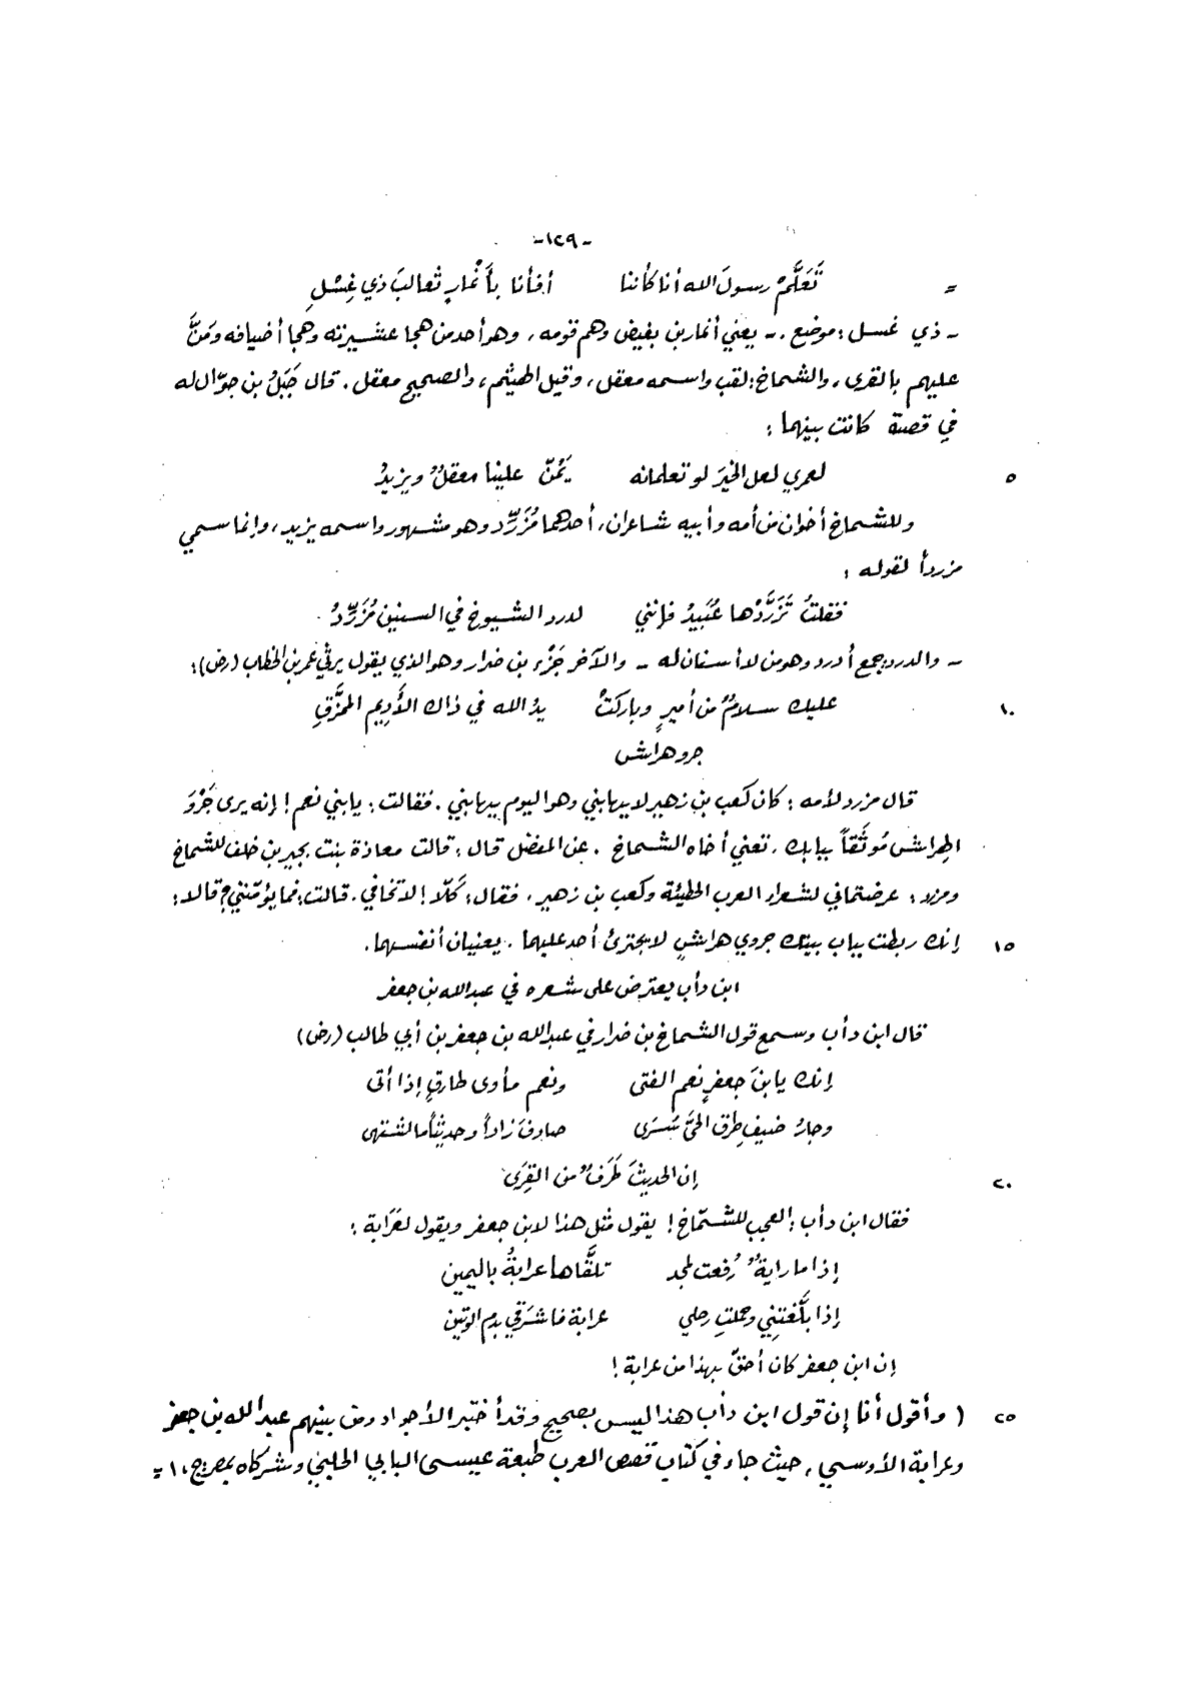 -١٢٩-
= تَعَلَّمْ رسولَ الله أنا كأننا أفأنا بأَنْمارٍ ثعالبَ ذي غِسْلِ
- ذي غسل: موضع .- يعني أنمار بن بغيض وهم قومه، وهو أحد من هجا عشيرته وهجا أضيافه ومَنَّ
عليهم بالقرى، والشماخ: لقب واسمه معقل، وقيل الهيثم، والصحيح معقل. قال جَبَلُ بن جوّال له
في قصة كانت بينهما:
٥ لعمري لعل الخيرَ لو تعلمانه يَمُنّ علينا معقلٌ ويزيدُ
وللشماخ أخوان من أمه وأبيه شاعران، أحدهما مُزَرِّد وهو مشهور واسمه يزيد، وإنما سمي
مزرداً لقوله:
فقلتُ تَزَرَّدْها عُبَيدُ فإنني لدرد الشيوخ في السنين مُزَرِّدُ
- والدرد: جمع أدرد وهو من لا أسنان له - والآخر جَزْء بن ضرار وهو الذي يقول يرثي عمر بن الخطاب (رض):
١٠ عليك سلامٌ من أميرٍ وباركتْ يدُ الله في ذاك الأَدِيم الممزَّقِ
جرو هراش
قال مزرد لأمه: كان كعب بن زهير لا يهابني وهو اليوم يهابني. فقالت: يا بني نعم! إنه يرى جَرْوَ
الهِراش مُوثَقاً ببابك، تعني أخاه الشماخ. عن المفضل قال: قالت معاذة بنت بجير بن خلف للشماخ
ومزرد: عرضتماني لشعراء العرب الحطيئة وكعب بن زهير، فقال: كَلّا! لا تخافي. قالت: فما يؤمّنني؟ قالا:
١٥ إنك ربطت بباب بيتك جروي هراشٍ لا يجترئ أحد عليهما. يعنيان أنفسهما.
ابن دأب يعترض على شعره في عبد الله بن جعفر
قال ابن دأب وسمع قول الشماخ بن ضرار في عبد الله بن جعفر بن أبي طالب (رض)
إنك يا ابنَ جعفرٍ نعم الفتى ونعم مأوى طارقٍ إذا أتى
وجارُ ضيفٍ طرق الحيَّ سَرَى صادفَ زاداً وحديثاً ما اشتهى
٢٠ إن الحديثَ طَرَفٌ من القِرَى
فقال ابن دأب: العجب للشمّاخ! يقول مثل هذا لابن جعفر ويقول لعَرَابة:
إذا ما رايةٌ رُفعت لمجد تلقَّاها عرابةُ باليمين
إذا بلَّغتِني وحملتِ رحلي عرابة فاشرَقي بدم الوتين
إن ابن جعفر كان أحقّ بهذا من عرابة!
٢٥ ( وأقول أنا إن قول ابن دأب هذا ليس بصحيح وقد أختبر الأجواد ومن بينهم عبد الله بن جعفر
وعرابة الأوسي، حيث جاء في كتاب قصص العرب طبعة عيسى البابي الحلبي وشركاه بمصر ج،١ =